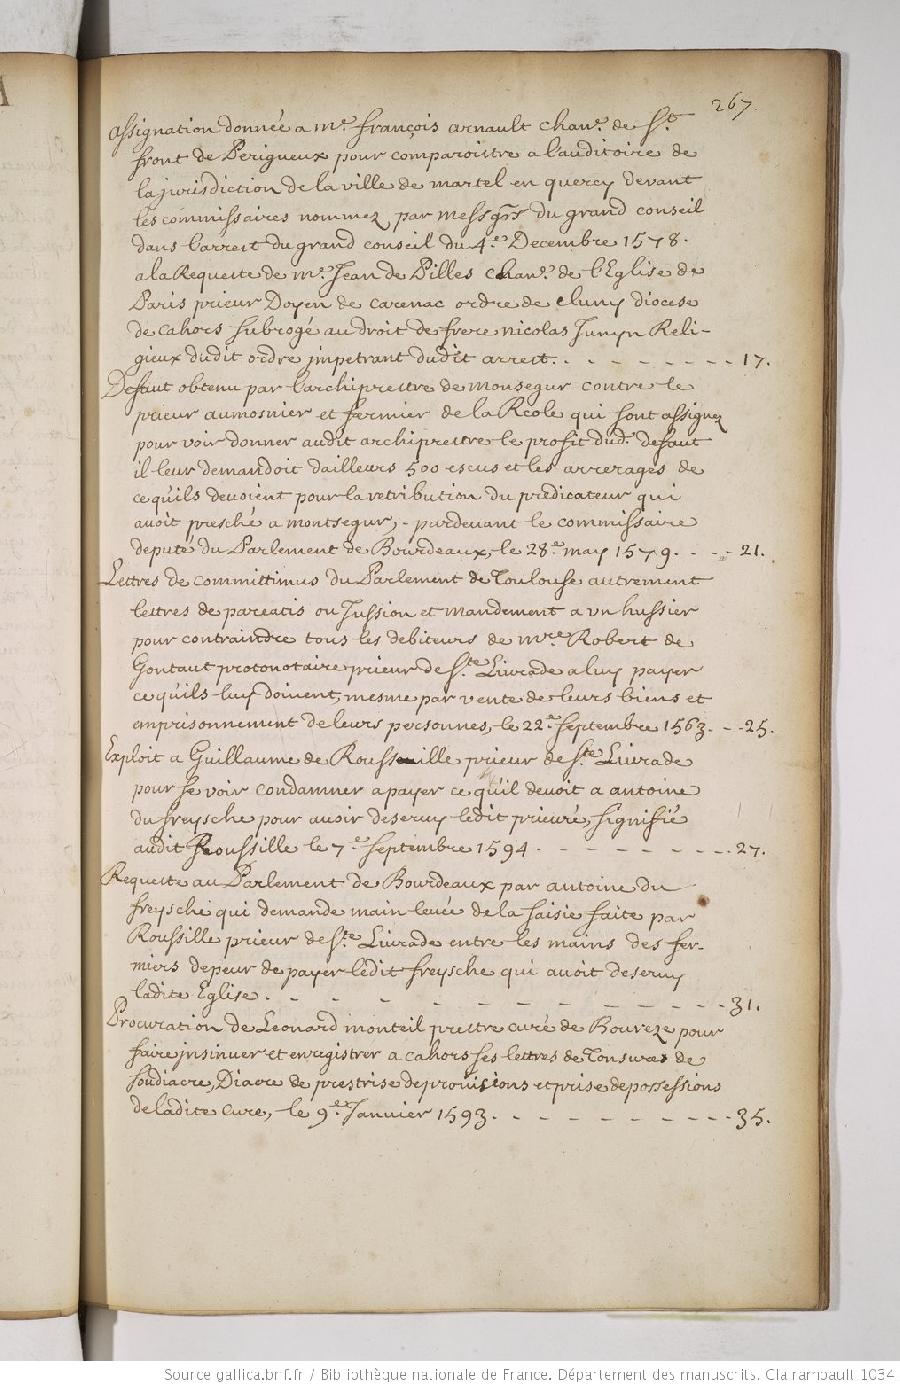 267.
Assignation donnée a me. françois arnault chane. de St.
front de Perigueux pour comparoistre a l'auditoire de
la jurisdiction de la ville de martel en quercy devant
les commissaires nommez par messgrs du grand conseil
dans l'arrest du grand conseil du 4.e Decembre 1578.
a la Requeste de me. Jean de Pilles chane. de l'Eglise de
Paris prieur Doyen de carenac ordre de cluny diocese
de cahors subrogé au droit de frere nicolas Reli-
gieux dudit ordre impetrant dudit arrest. - - - - - - - 17.
Deffaut obtenu par l'archiprestre de monsegur contre le
prieur aumosnier et fermier de la Reole qui sont assignez
pour voir donner audit archiprestre le profit dud. defaut
il leur demandoit dailleurs 500 escus et les arrerages de
ce quils devoient pour la retribution du predicateur qui
avoit presché a montsegur, - pardevant le commissaire
deputé du Parlement de Bourdeaux, le 28.e may 1579. - - - 21.
Lettres de committimus du Parlement de Toulouse autrement
lettres de pareatis ou Jussion et mandement a un hussier
pour contraindre tous les debiteurs de mre. Robert de
Gontaut protonotaire prieur de Ste. Livrade a luy payer
ce quils luy doivent, mesme par vente de leurs biens et
emprisonnement de leurs personnes, le 22.e Septembre 1563. - - 25.
Exploit a Guillaume de Roussille prieur de Ste. Livrade
pour se voir condamner a payer ce qu'il devoit a antoine
du freysche pour avoir deservy ledit prieuré, signifié
audit Roussille le 7.e Septembre 1594. - - - - - - - 27.
Requeste au Parlement de Bourdeaux par antoine du
freysche qui demande main levée de la saisie faite par
Roussille prieur de Ste. Livrade entre les mains des fer-
miers depeur de payer ledit freysche qui avoit deservy
ladite Eglise. - - - - - - - - - - - 31.
Procuration de Leonard monteil prestre curé de Boureze pour
faire insinuer et enregistrer a cahors ses lettres de Tonsures de
soudiacre, Diacre de prestrise de provisions et prise de possessions
de ladite Cure, le 9.e Janvier 1593. - - - - - - - - 35.
Source gallica.bnf.fr / Bibliothèque nationale de France. Département des manuscrits. Clairambault 1034